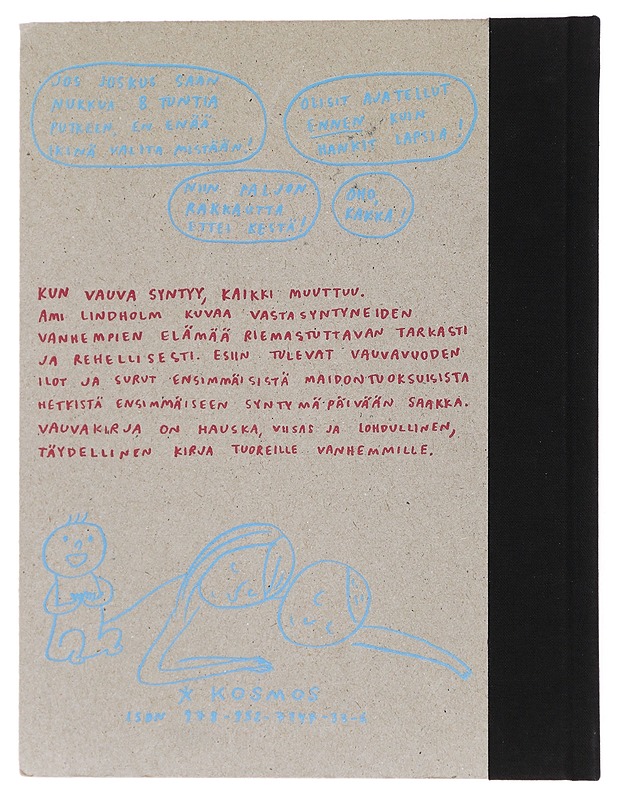 JOS JOSKUS SAAN
NUKKUA 8 TUNTIA
PUTKEEN, EN ENÄÄ
IKINÄ VALITA MISTÄÄN!
OLISIT AJATELLUT
ENNEN KUIN
HANKIT LAPSIA!
NIIN PALJON
RAKKAUTTA
ETTEI KESTÄ!
OHO,
KAKKA!
KUN VAUVA SYNTYY, KAIKKI MUUTTUU.
AMI LINDHOLM KUVAA VASTASYNTYNEIDEN
VANHEMPIEN ELÄMÄÄ RIEMASTUTTAVAN TARKASTI
JA REHELLISESTI. ESIIN TULEVAT VAUVAVUODEN
ILOT JA SURUT ENSIMMÄISISTÄ MAIDONTUOKSUISISTA
HETKISTÄ ENSIMMÄISEEN SYNTYMÄPÄIVÄÄN SAAKKA.
VAUVAKIRJA ON HAUSKA, VIISAS JA LOHDULLINEN,
TÄYDELLINEN KIRJA TUOREILLE VANHEMMILLE.
X KOSMOS
ISBN